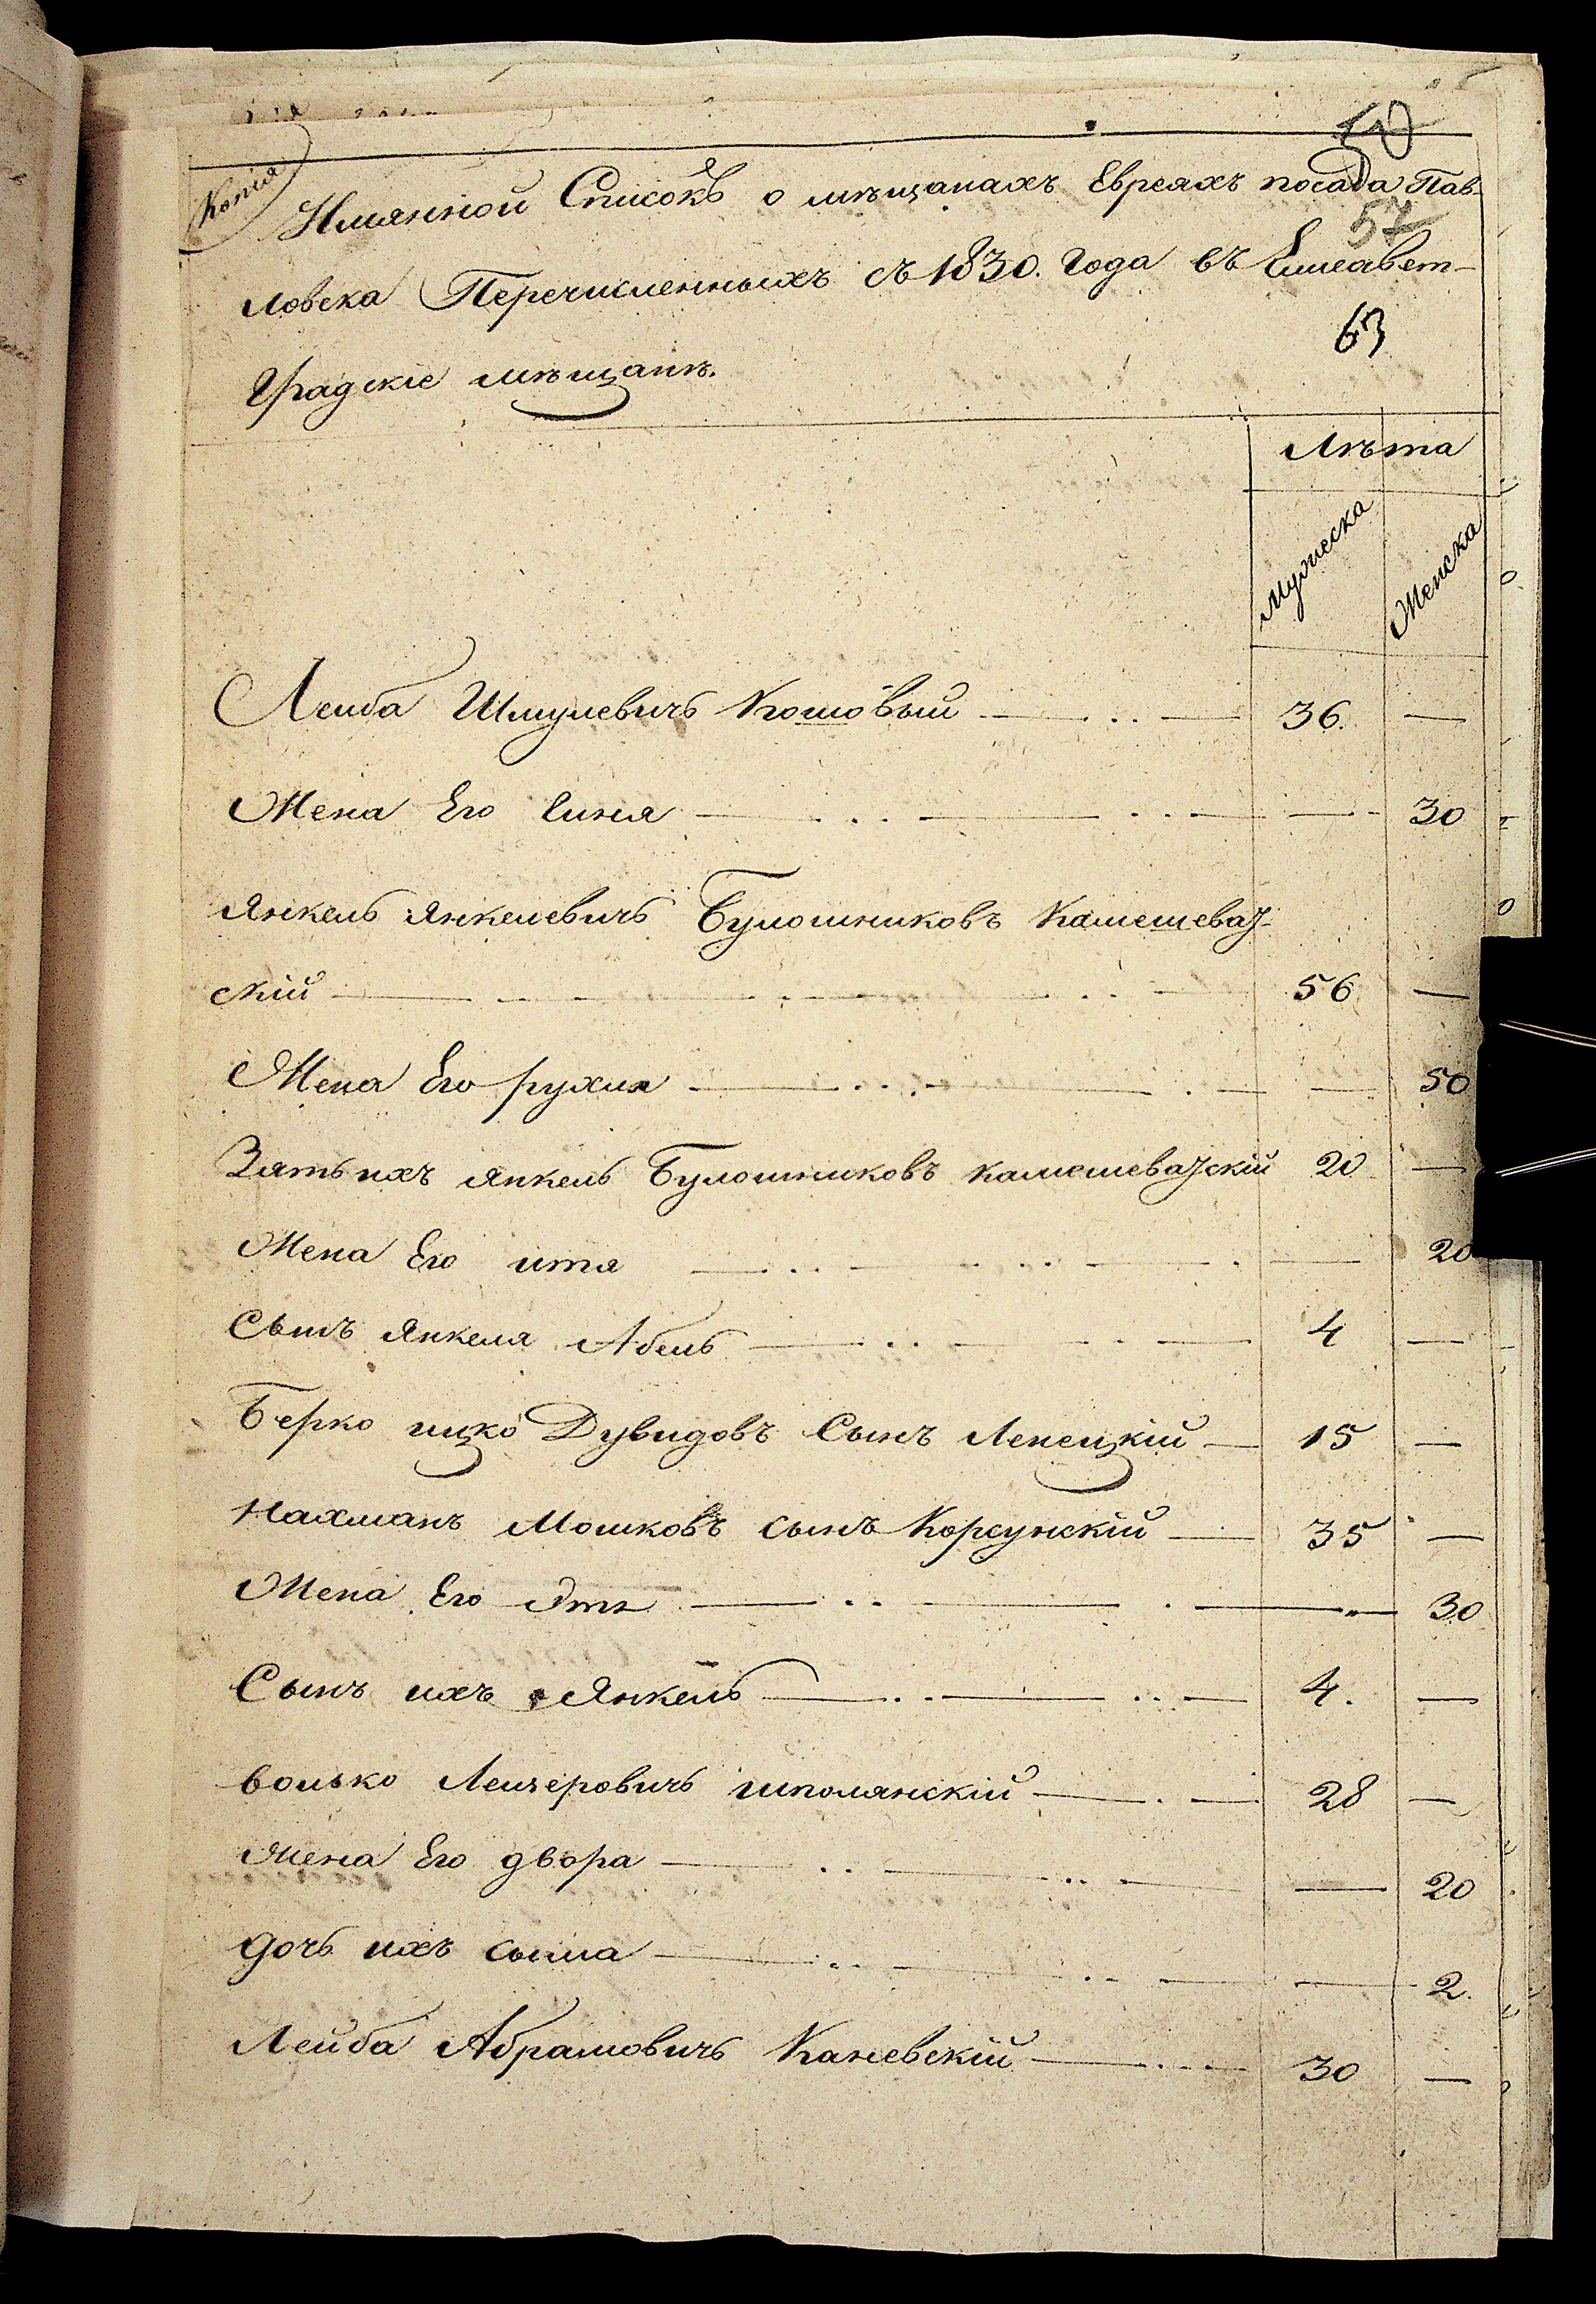 50
Копія
Имянной Списокъ о мѣщанахъ Евреяхъ посада Пав-
57
ловска Перечисленныхъ съ 1830. Года въ Елисавет-
63
Градскіе мѣщанѣ.
Лѣта
Мужеска Женска
Лейба Шмулевичъ Кошовый 36. —
Жена Его Синя — 30
Янкель Янкелевичъ Булошниковъ Камешеват-
скій 56 —
Жена Его рухля — 50
Зять ихъ Янкель Булошниковъ камешеватскій 20 —
Жена Его итя — 20
Сынъ Янкеля Абель 4 —
Берко ицко Дувидовъ Сынъ Лепецкій 15 —
Нахманъ Мошковъ сынъ Корсунскій 35 —
Жена Его — 30
Сынъ ихъ Янкель 4. —
волько Лейзеровичъ шполянскій 28 —
Жена Его двора — 20
дочь ихъ сыма — 2.
Лейба Абрамовичъ Каневскій 30 —